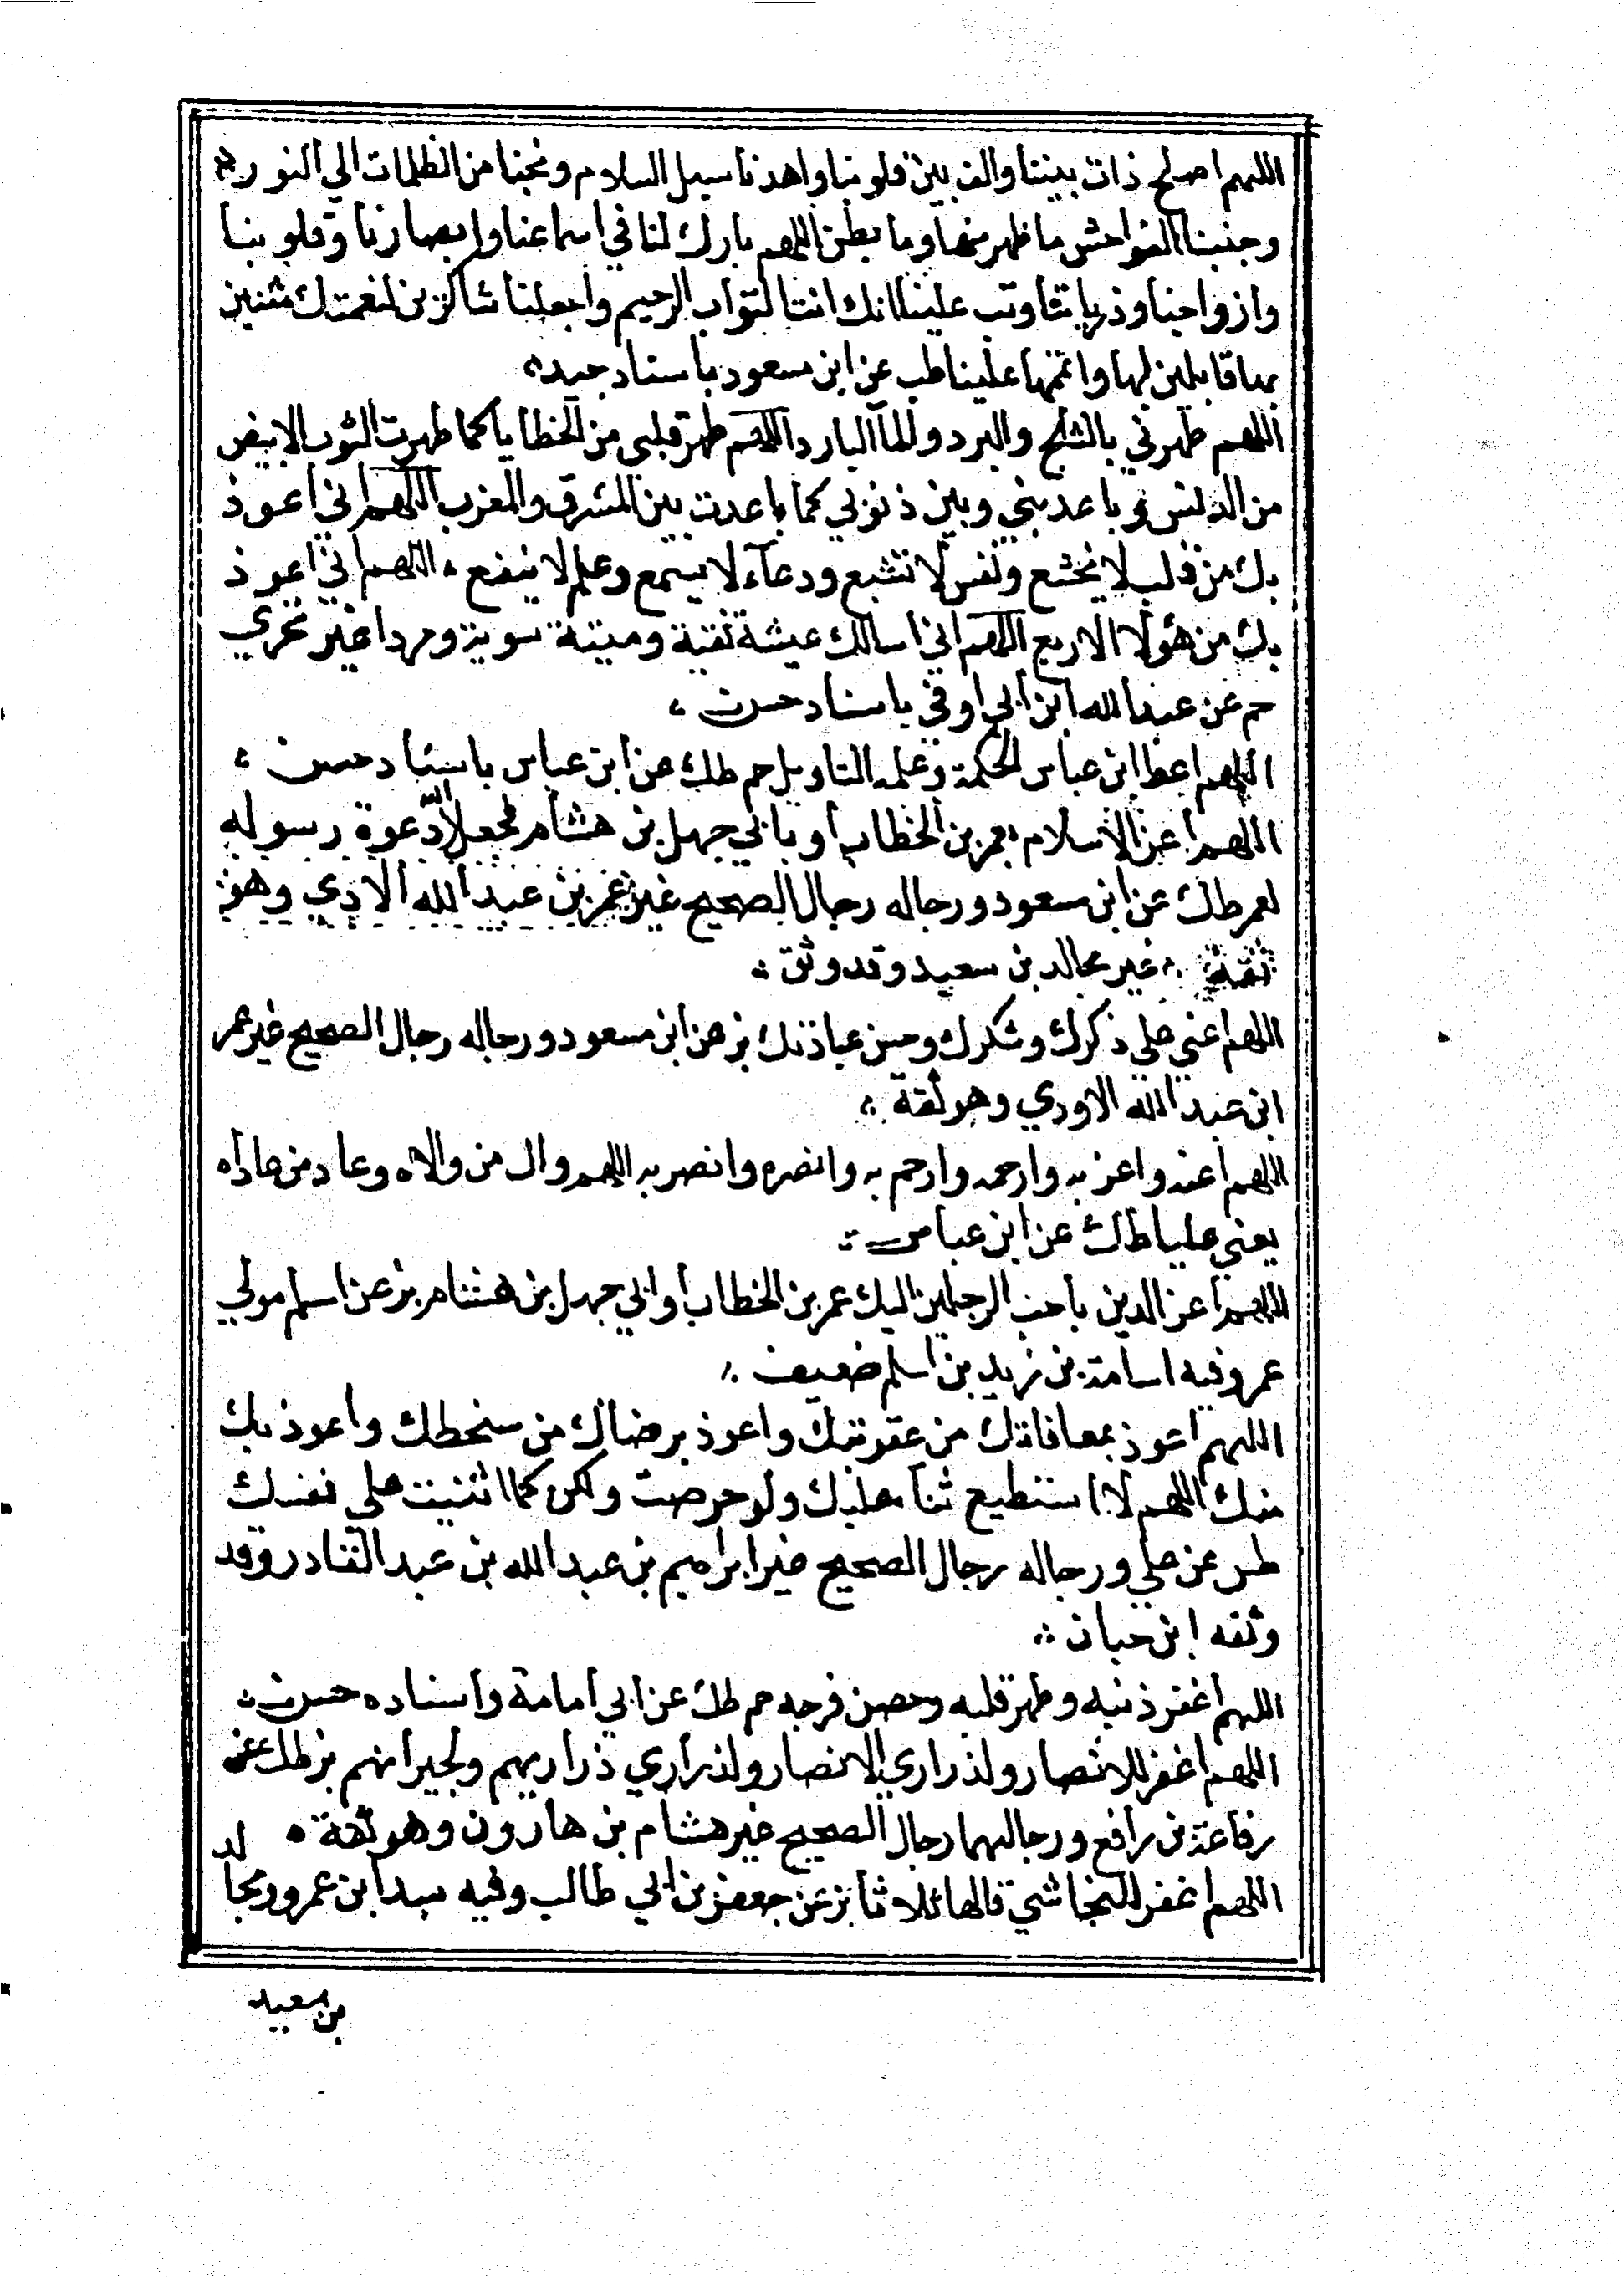 اللهم اصلح ذات بيننا والف بين قلوبنا واهدنا سبيل السلام ونجنا من الظلمات الي النور
وجنبنا الفواحش ما ظهر منها وما بطن اللهم بارك لنا في اسماعنا وابصارنا وقلوبنا
وازواجنا وذرياتنا وتب علينا انك انت التواب الرحيم واجعلنا شاكرين لنعمتك مثنين
بها قابلين لها واتمها علينا طب عن ابن مسعود باسناد جيد
اللهم طهرني بالثلج والبرد والمآ البارد اللهم طهر قلبي من الخطايا كما طهرت الثوب الابيض
من الدنس وباعد بيني وبين ذنوبي كما باعدت بين المشرق والمغرب اللهم اني اعوذ
بك من قلب لا يخشع ونفس لا تشبع ودعآء لا يسمع وعلم لا ينفع اللهم اني اعوذ
بك من هؤلا الاربع اللهم اني اسالك عيشة نقية وميتة سوية ومردا غير مخزي
حم عن عبد الله ابن ابي اوفي باسناد حسن
اللهم اعط ابن عباس الحكمة وعلمه التاويل حم طك عن ابن عباس باسناد حسن
اللهم اعز الاسلام بعمر بن الخطاب او بابي جهل بن هشام فجعل الله دعوة رسوله
لعمر طك عن ابن مسعود ورجاله رجال الصحيح غير عمر بن عبد الله الادي وهو
ثقة غير مجالد بن سعيد وقد وثق
اللهم اعني علي ذكرك وشكرك وحسن عبادتك بز عن ابن مسعود ورجاله رجال الصحيح غير عمر
ابن عبد الله الاودي وهو ثقة
اللهم اعنه واعن به وارحمه وارحم به وانصره وانصر به اللهم وال من والاه وعاد من عاداه
يعني عليا طك عن ابن عباس
اللهم اعز الدين باحب الرجلين اليك عمر بن الخطاب او ابي جهل بن هشام بز عن اسلم مولي
عمر وفيه اسامة بن زيد بن اسلم ضعيف
اللهم اعوذ بمعافاتك من عقوبتك واعوذ برضاك من سخطك واعوذ بك
منك اللهم لا استطيع ثنآء عليك ولو حرصت ولكن كما اثنيت علي نفسك
طس عن علي ورجاله رجال الصحيح غير ابراهيم بن عبد الله بن عبد القادر وقد
وثقه ابن حبان
اللهم اغفر ذنبه وطهر قلبه وحصن فرجه حم طك عن ابي امامة واسناده حسن
اللهم اغفر للانصار ولذراري الانصار ولذراري ذراريهم ولجيرانهم بز طك عن
رفاعة بن رافع ورجالهما رجال الصحيح غير هشام بن هارون وهو ثقة
اللهم اغفر للنجاشي قالها ثلاثا بز عن جعفر بن ابي طالب وفيه عمرو ومجالد
بن سعيد